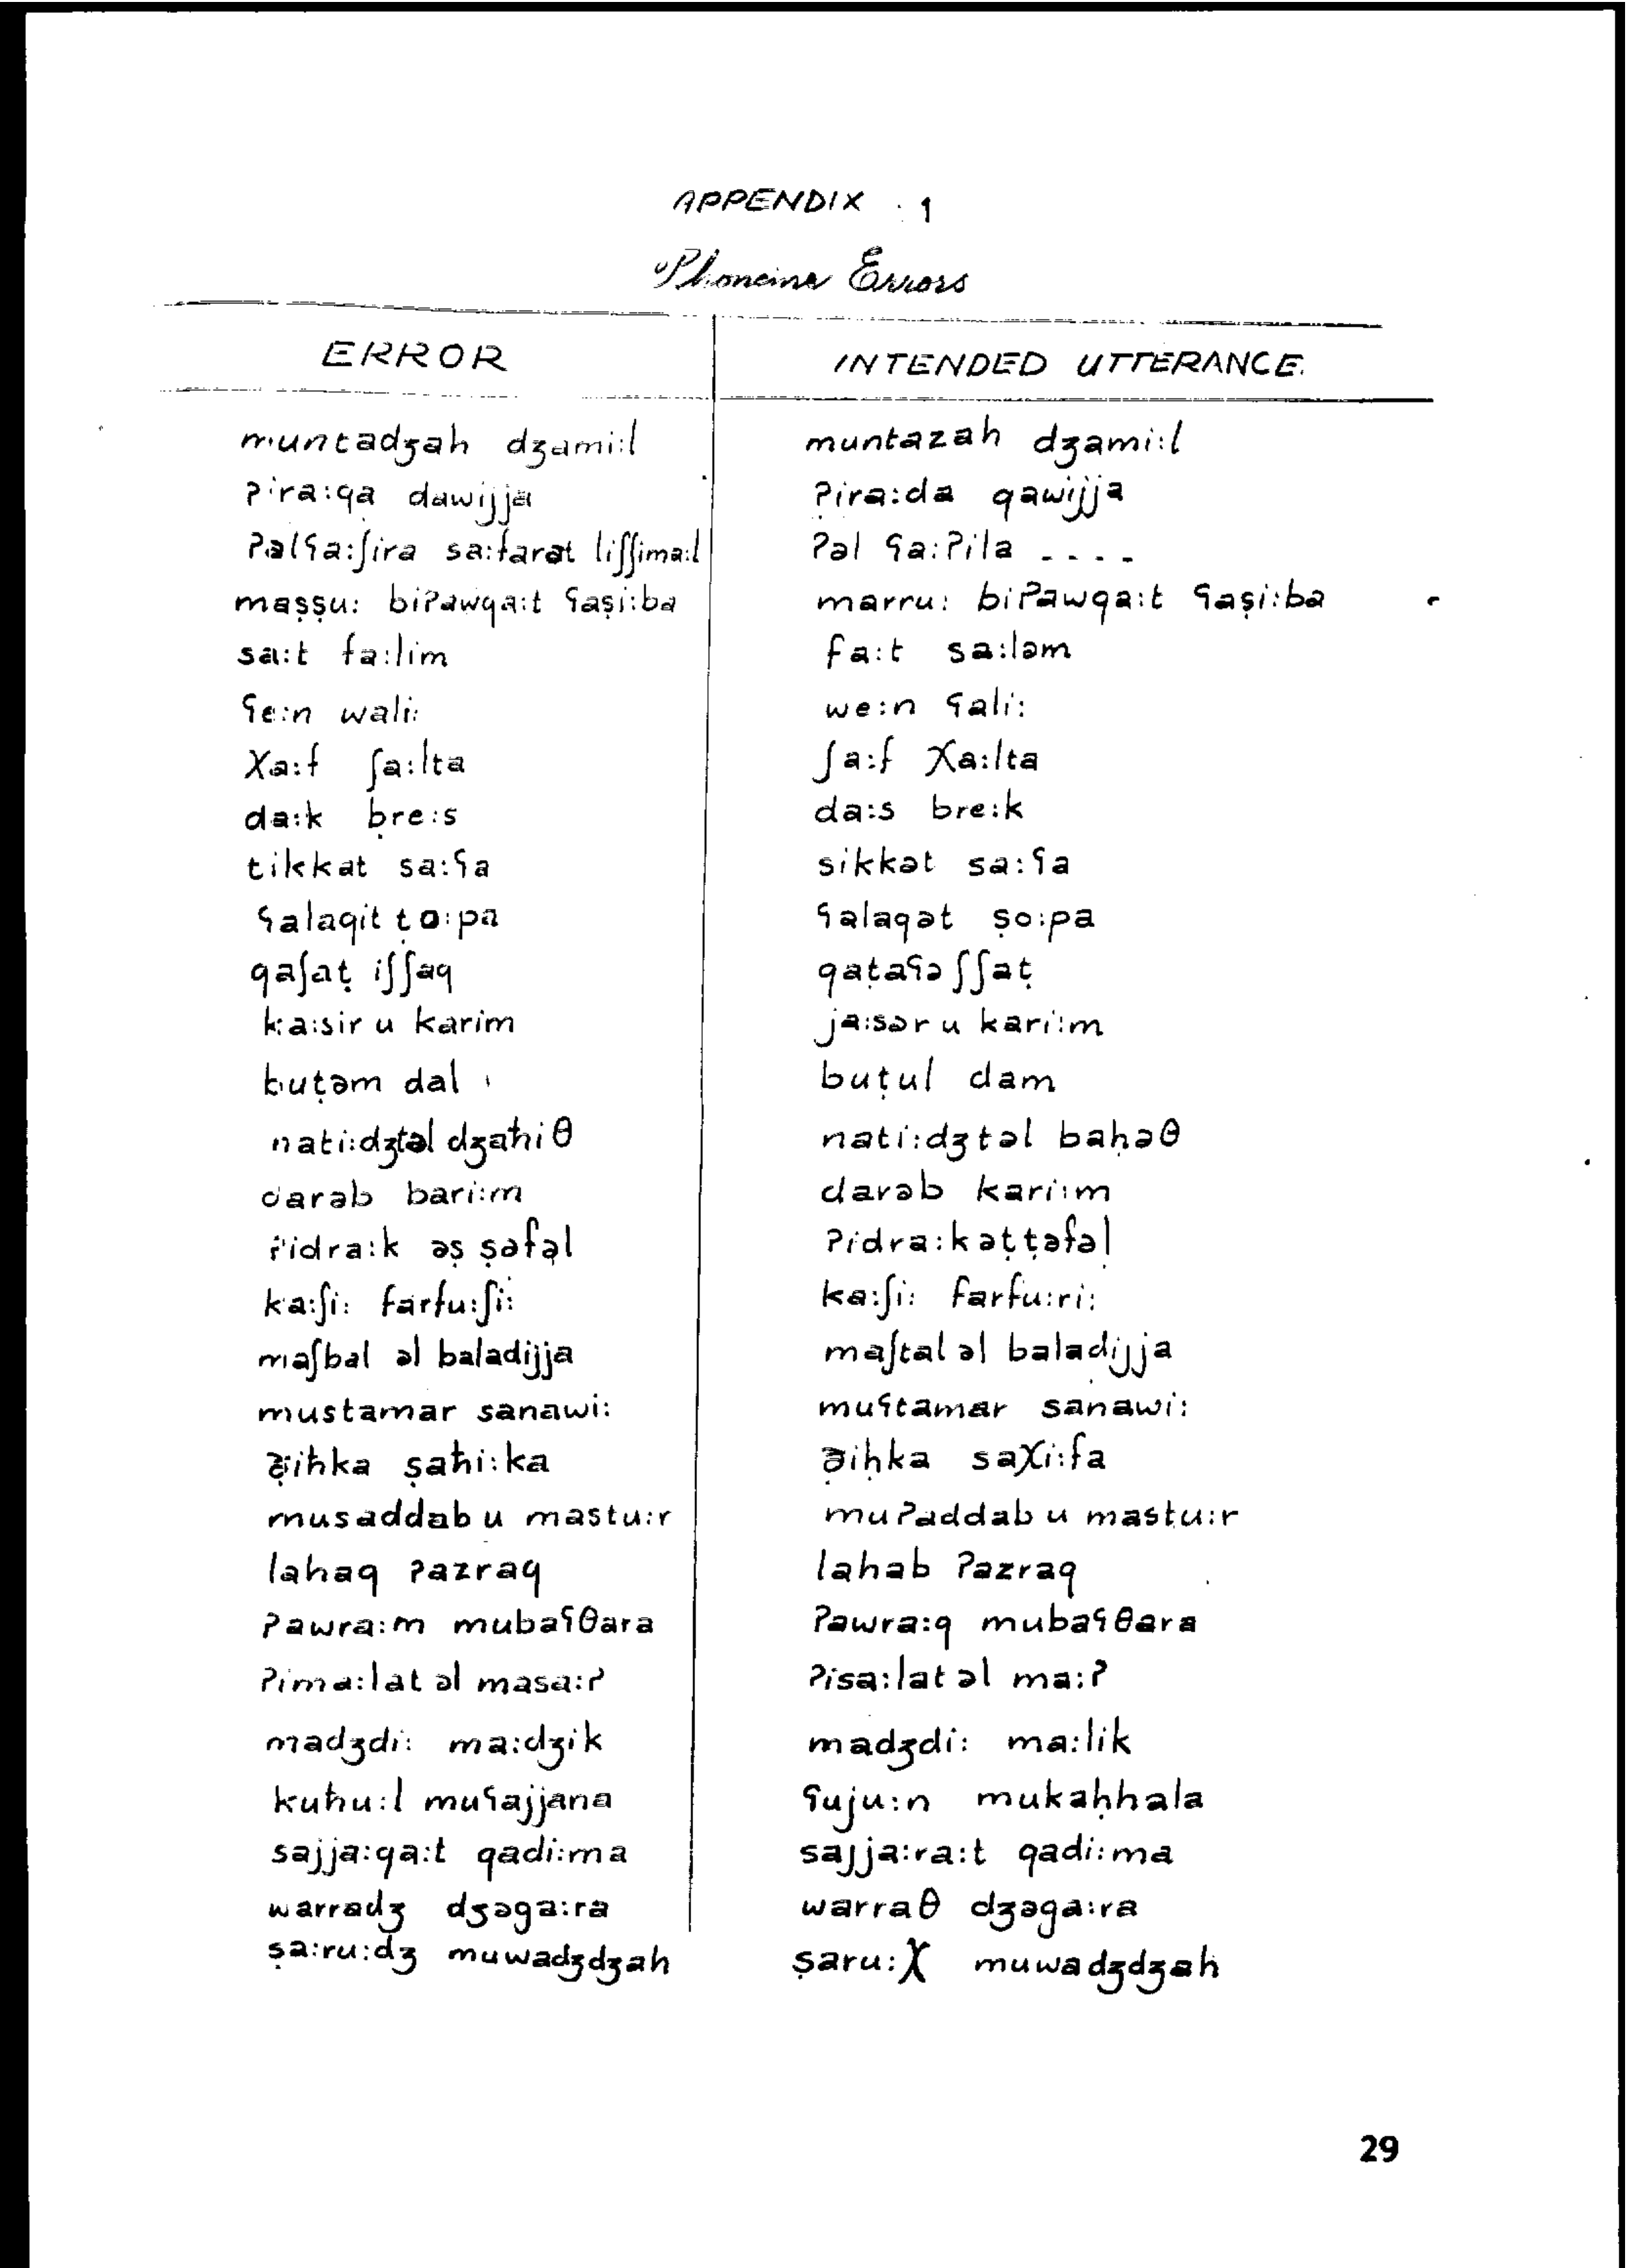 APPENDIX : 1
Phoneme Errors
ERROR INTENDED UTTERANCE.
muntadʒah dʒami:l muntazah dʒami:l
ʔira:qa dawijja ʔira:da qawijja
ʔəlʕa:ʃira sa:farət liʃʃima:l ʔəl ʕa:ʔila ----
maṣṣu: biʔawqa:t ʕaṣi:ba marru: biʔawqa:t ʕaṣi:ba
sa:t fa:lim fa:t sa:ləm
ʕe:n wali: we:n ʕali:
χa:f ʃa:lta ʃa:f χa:lta
da:k bre:s da:s bre:k
tikkat sa:ʕa sikkət sa:ʕa
ʕalaqit ṭo:pa ʕalaqət ṣo:pa
qaʃaṭ iʃʃaq qaṭaʕə ʃʃaṭ
ka:sir u karim ja:sər u kari:m
buṭəm dal buṭul dam
nati:dʒtəl dʒaħiθ nati:dʒtəl baḥəθ
darəb bari:m darəb kari:m
ʔidra:k əṣ ṣəfəl ʔidra:k əṭṭəfəl
ka:ʃi: farfu:ʃi: ka:ʃi: farfu:ri:
maʃbal əl baladijja maʃtal əl baladijja
mustamar sanawi: muʕtamar sanawi:
ð̣iħka ṣaħi:ka ð̣iḥka saχi:fa
musaddab u mastu:r muʔaddab u mastu:r
lahaq ʔazraq lahab ʔazraq
ʔawra:m mubaʕθara ʔawra:q mubaʕθara
ʔima:lat əl masa:ʔ ʔisa:lat əl ma:ʔ
madʒdi: ma:dʒik madʒdi: ma:lik
kuħu:l muʕajjana ʕuju:n mukaḥḥala
sajja:qa:t qadi:ma sajja:ra:t qadi:ma
warradʒ dʒəga:ra warraθ dʒəga:ra
ṣa:ru:dʒ muwadʒdʒah ṣaru:χ muwadʒdʒah
29